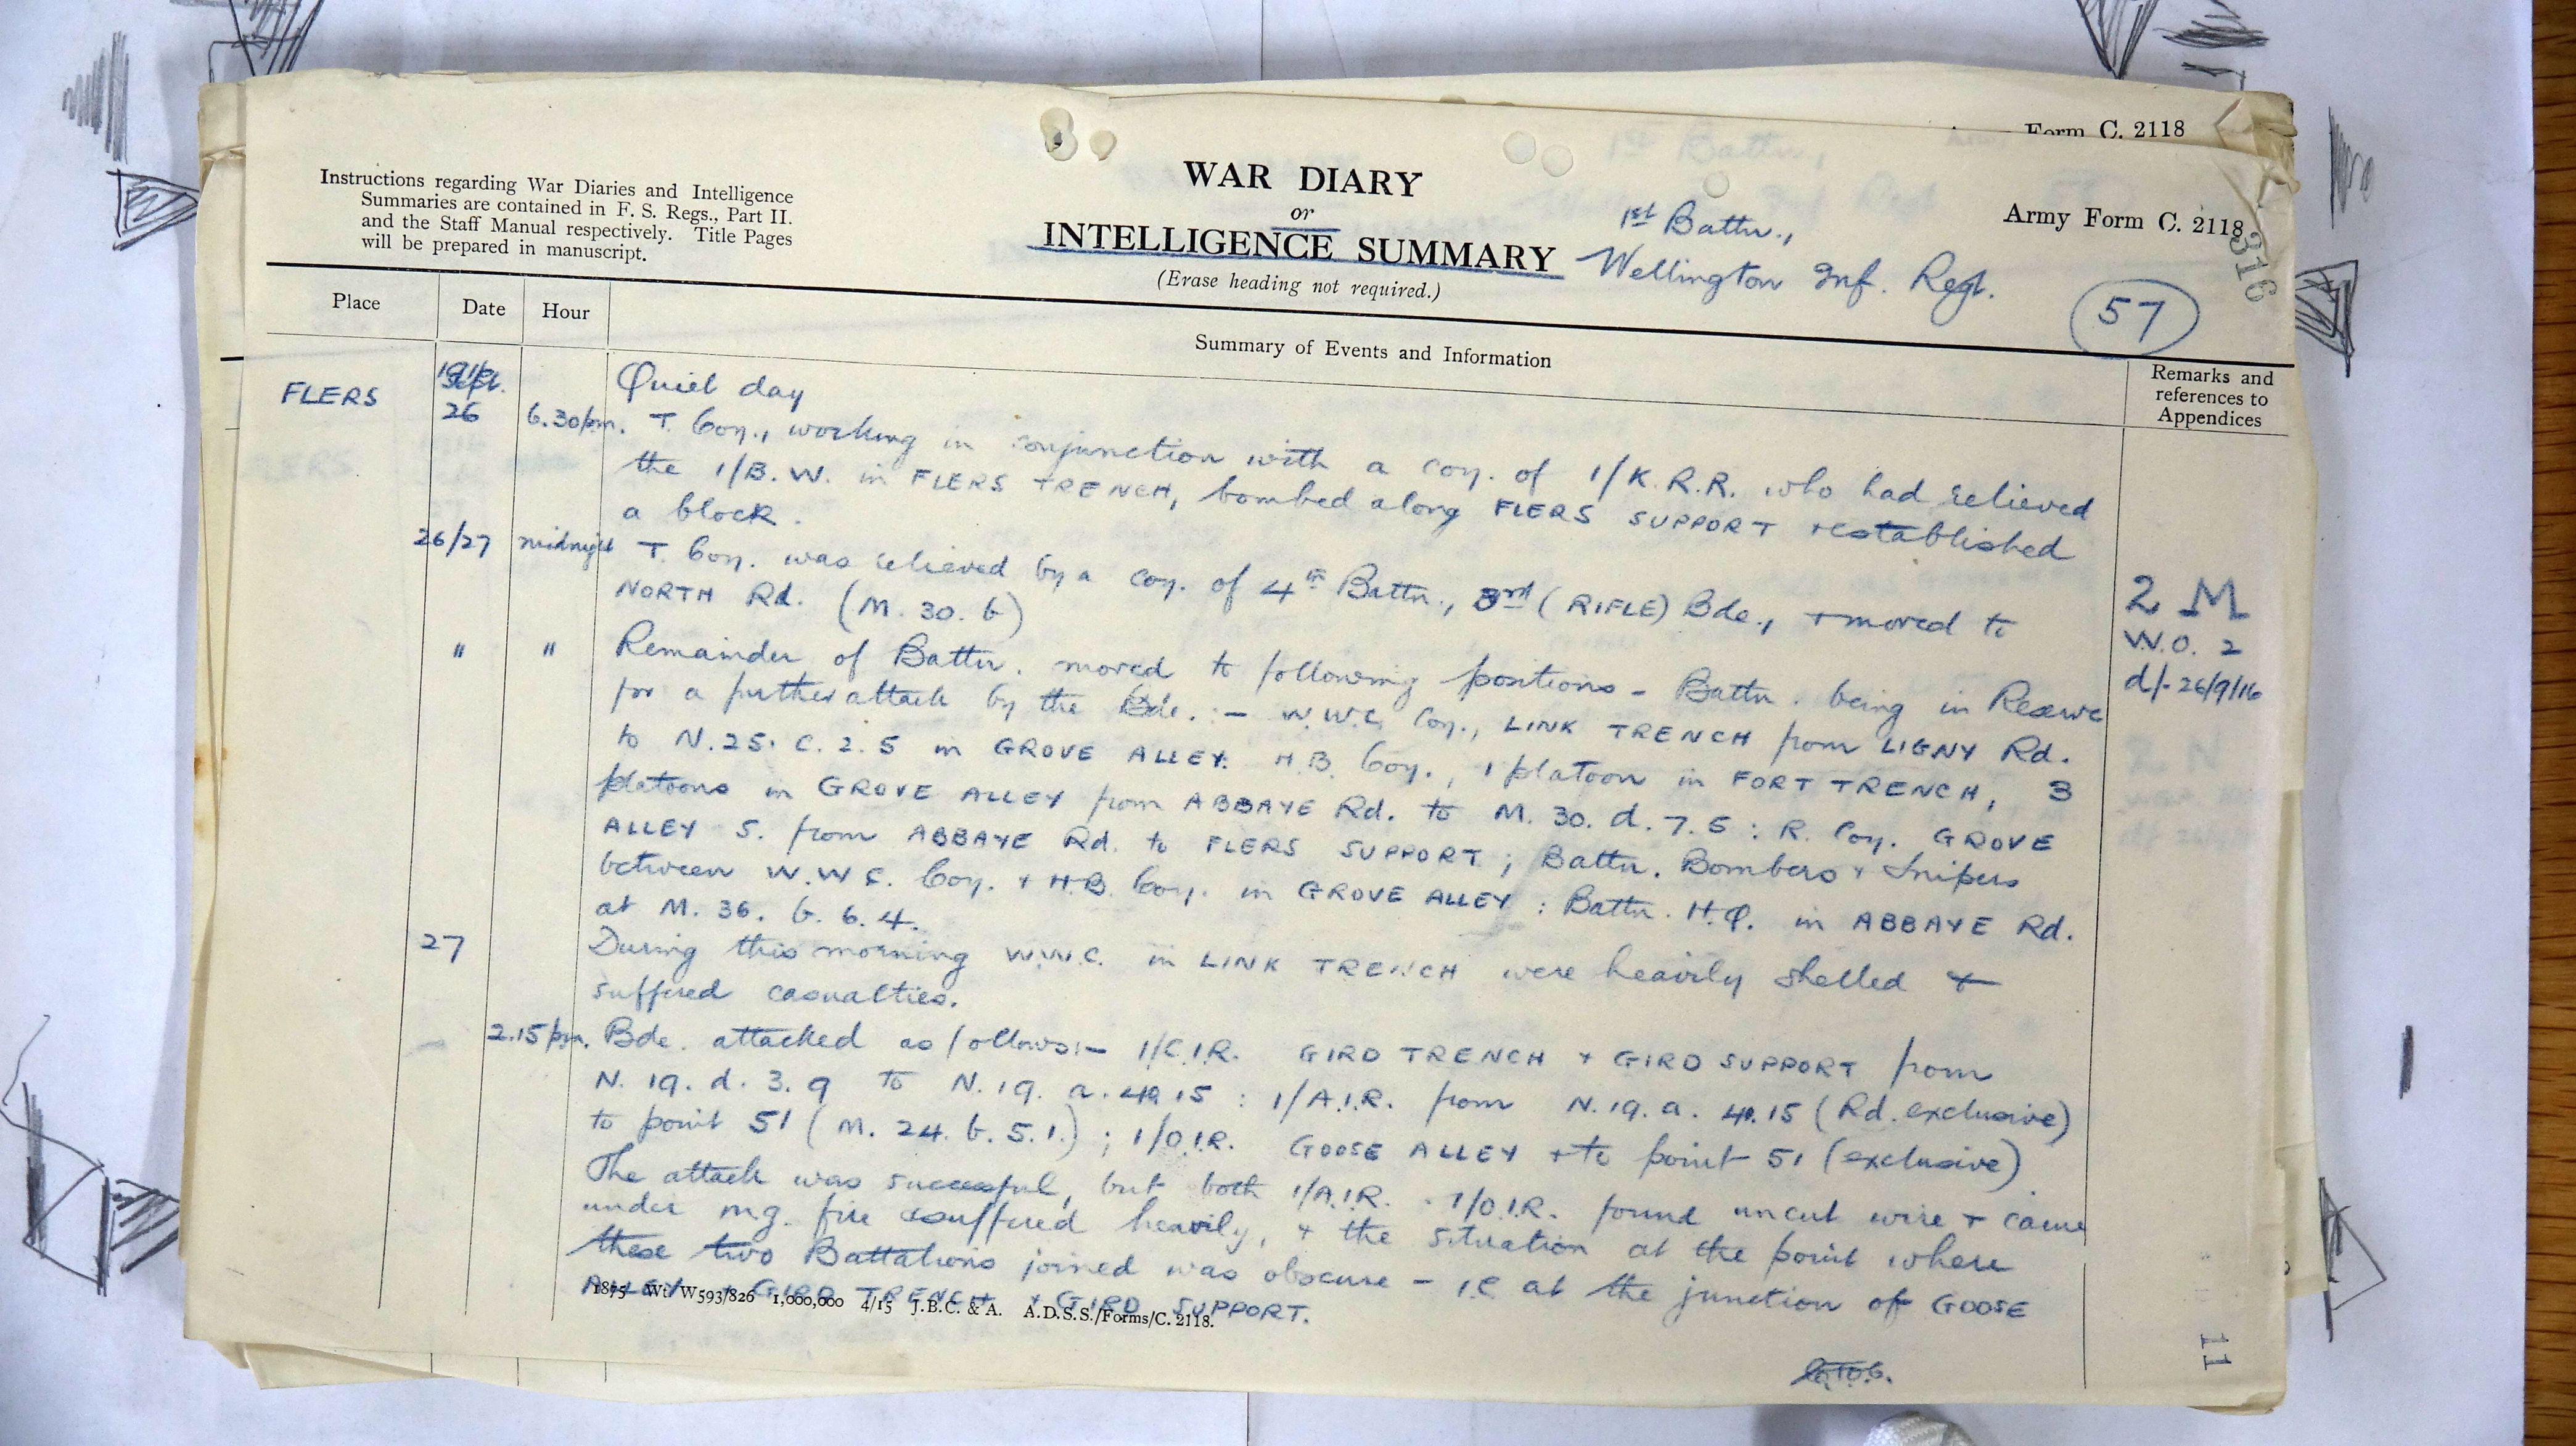 Form C. 2118
Instructions regarding War Diaries and Intelligence
Summaries are contained in F. S. Regs., Part II.
and the Staff Manual respectively. Title Pages
will be prepared in manuscript.
WAR DIARY
or
INTELLIGENCE SUMMARY
(Erase heading not required.)
1st Battn.,
Wellington Inf. Regt.
Army Form C. 2118
316
57
Place Date Hour Summary of Events and Information Remarks and references to Appendices
FLERS Sept. Quiet day
26 6.30pm. T. Coy., working in conjunction with a coy. of 1/K.R.R. who had relieved
the 1/B.W. in FLERS TRENCH, bombed along FLERS SUPPORT + established
a block.
26/27 midnight T. Coy. was relieved by a coy. of 4th Battn., 3rd (RIFLE) Bde., + moved to
NORTH Rd. (M. 30. b)
" " Remainder of Battn. moved to following positions - Battn. being in Reserve
for a further attack by the Bde. :- W.W.C. Coy., LINK TRENCH from LIGNY Rd.
to N.25. C. 2. 5 in GROVE ALLEY. H.B. Coy., 1 platoon in FORT TRENCH, 3
platoons in GROVE ALLEY from ABBAYE Rd. to M. 30. d. 7. 5 : R. Coy. GROVE
ALLEY S. from ABBAYE Rd. to FLERS SUPPORT ; Battn. Bombers + Snipers
between W.W.C. Coy. + H.B. Coy. in GROVE ALLEY : Battn. H.Q. in ABBAYE Rd.
at M. 36. b. 6. 4.
2 M
W.O. 2
d/- 26/9/16
27 During this morning W.W.C. in LINK TRENCH were heavily shelled +
suffered casualties.
2.15pm. Bde. attacked as follows:- 1/C.I.R. GIRD TRENCH + GIRD SUPPORT from
N. 19. d. 3. 9 to N. 19. a. 15 : 1/A.I.R. from N. 19. a. 15 (Rd. exclusive)
to point 51 (M. 24. b. 5. 1.) ; 1/O.I.R. GOOSE ALLEY + to point 51 (exclusive)
The attack was successful, but both 1/A.I.R. . 1/O.I.R. found uncut wire + came
under m.g. fire + suffered heavily, + the situation at the point where
these two Battalions joined was obscure - i.e at the junction of GOOSE
ALLEY + GIRD TRENCH + GIRD SUPPORT.
1875 Wt. W593/826 1,000,000 4/15 J.B.C. & A. A.D.S.S./Forms/C. 2118.
11